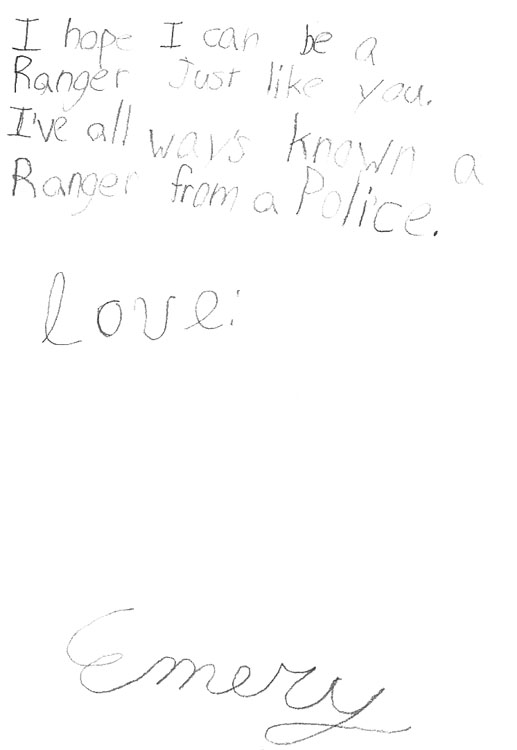 I hope I can be a
Ranger Just like you.
I've all ways known a
Ranger from a Police.
Love:
Emery